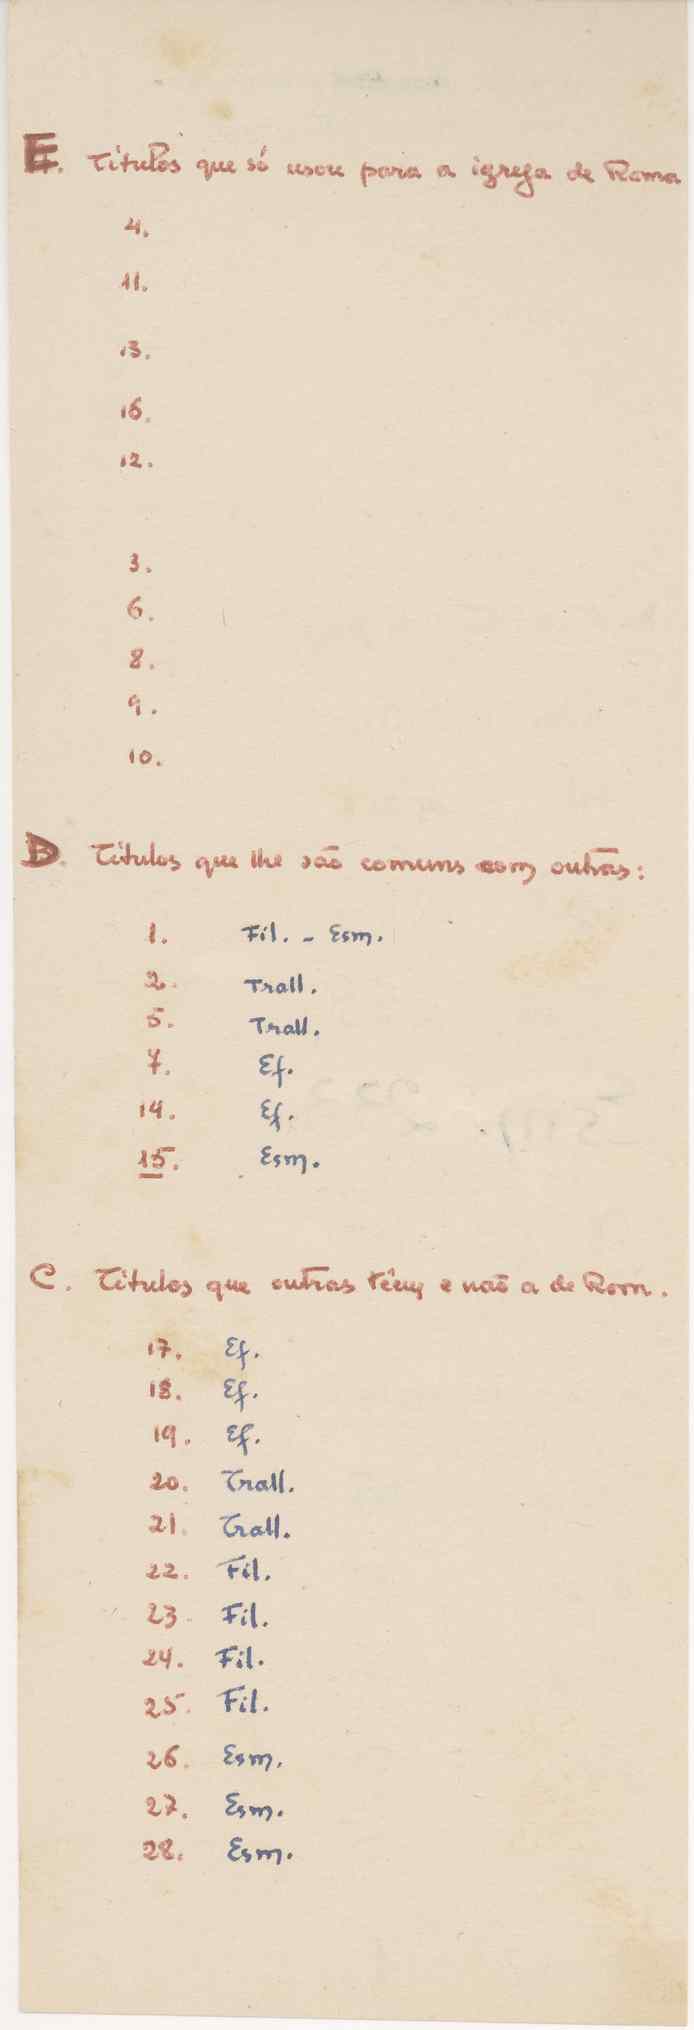 E. Títulos que só usou para a igreja de Roma
4.
11.
13.
16.
12.
3.
6.
8.
9.
10.
D. Títulos que lhe são comuns com outras:
1. Fil. - Esm.
2. Trall.
5. Trall.
7. Ef.
14. Ef.
15. Esm.
C. Títulos que outras têm e não a de Rom.
17. Ef.
18. Ef.
19. Ef.
20. Trall.
21. Trall.
22. Fil.
23. Fil.
24. Fil.
25. Fil.
26. Esm.
27. Esm.
28. Esm.